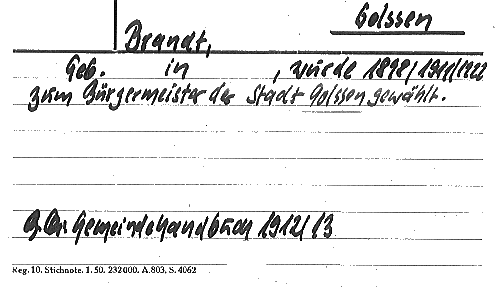 Golssen
Brandt,
Geb. in , wurde 1898/1911/1922
zum Bürgermeister der Stadt Golssen gewählt.
Gemeindehandbuch 1912/13
Reg. 10. Stichnote. 1. 50. 232000. A. 803, S. 4062